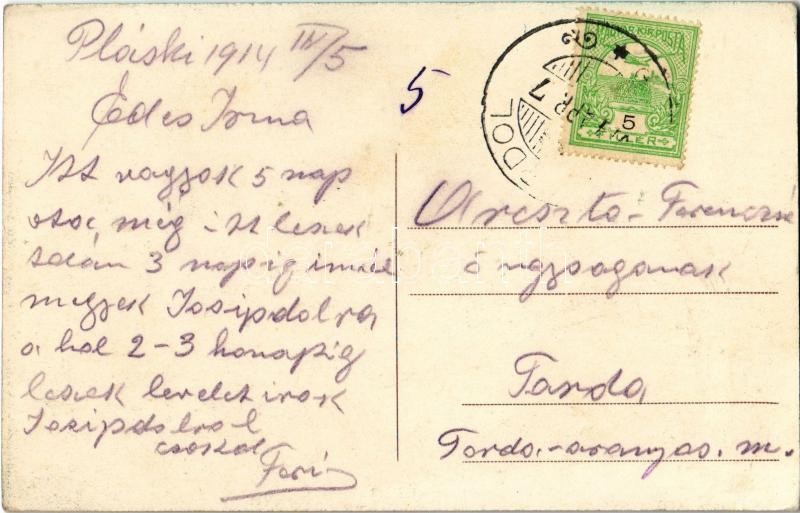 Pláski 1914 IV/5
Édes Irma
Itt vagyok 5 nap
ota még itt leszek
talán 3 napig innét
megyek Josipdolra
a hol 2-3 honapig
leszek levelet irok
Josipdolrol
csokol
Feri
5
MAGYAR KIR. POSTA
5
FILLÉR
DOL
APR 7
Areszta Ferenczné
őnagysaganak
Torda
Torda-aranyos. m.